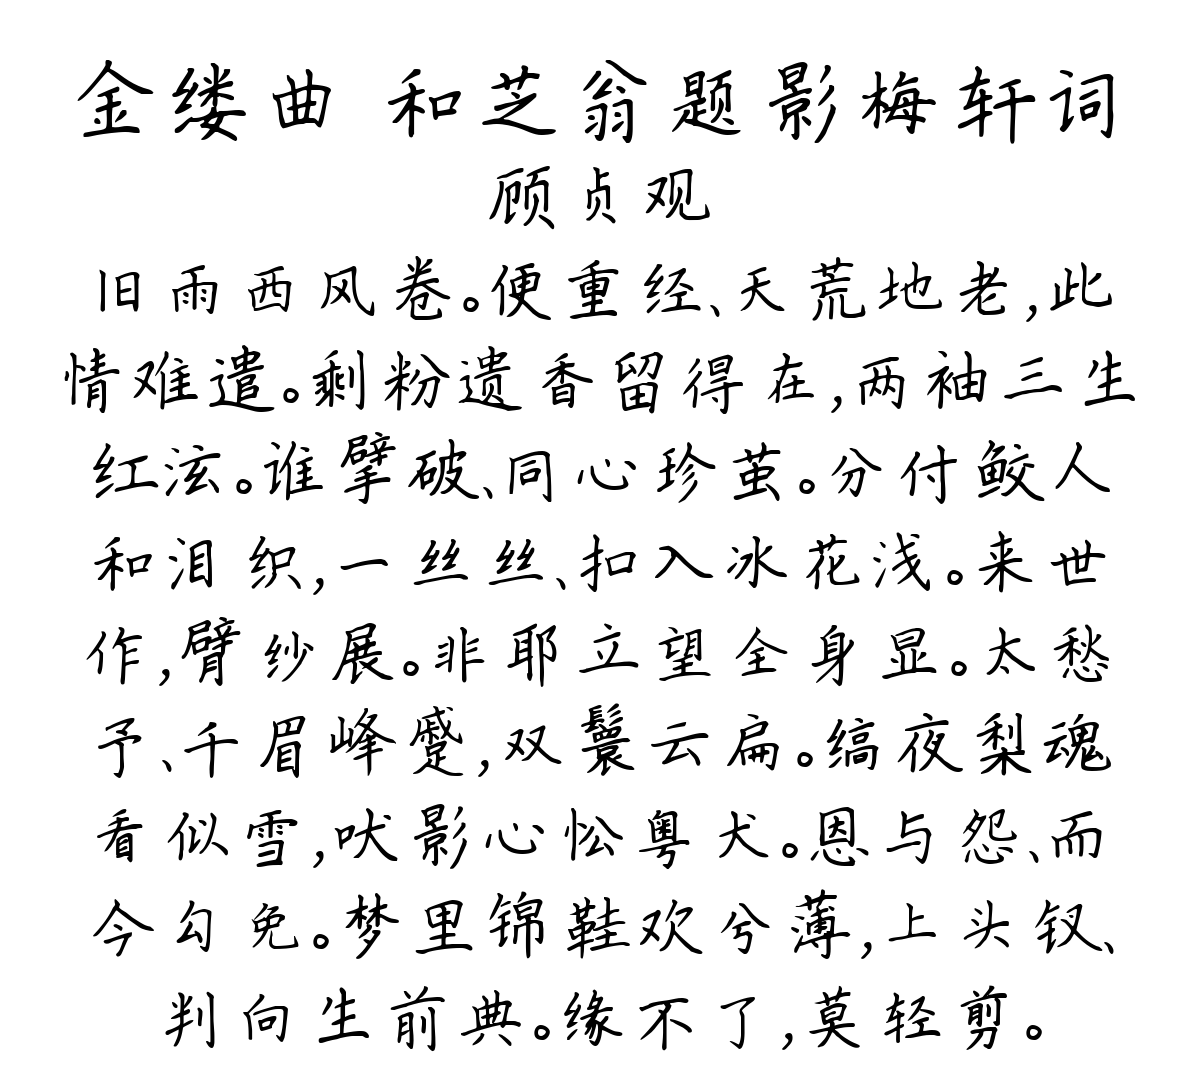 金缕曲 和芝翁题影梅轩词
顾贞观
旧雨西风卷。便重经、天荒地老,此
情难遣。剩粉遗香留得在,两袖三生
红泫。谁擘破、同心珍茧。分付鲛人
和泪织,一丝丝、扣入冰花浅。来世
作,臂纱展。非耶立望全身显。太愁
予、千眉峰蹙,双鬟云扁。缟夜梨魂
看似雪,吠影心忪粤犬。恩与怨、而
今勾免。梦里锦鞋欢兮薄,上头钗、
判向生前典。缘不了,莫轻剪。